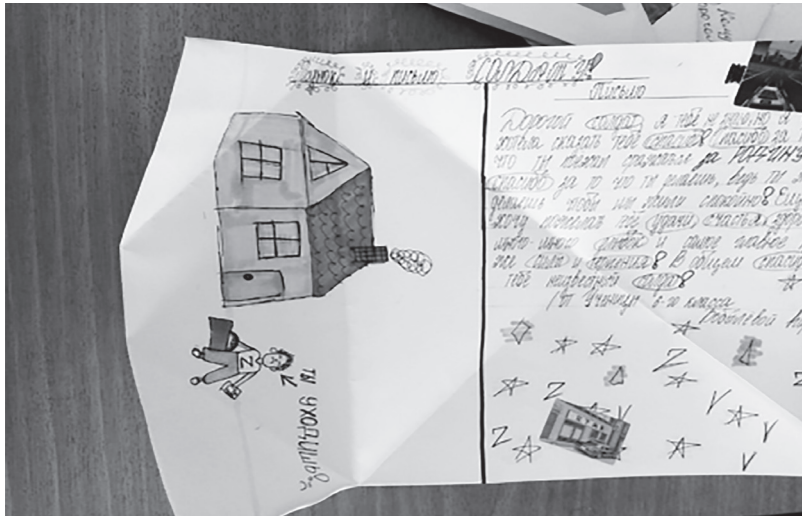 рисунок и письмо СОЛДАТУ!
Письмо
Дорогой солдат, я тебе не знаю, но я
хотела сказать тебе спасибо! Спасибо за
что ты поехал сражаться за РОССИЮ
спасибо за то что ты делаешь, ведь ты
делаешь чтобы мы жили спокойно! Ещё
хочу пожелать тебе удачи счастья, здоро
много-много и самое главное
тебе силы и терпения! В общем спасибо
тебе неизвестный солдат!
От Ученицы 6-го класса
Z
Z
Z
Z
V
V
V
V
Z
ТЫ УХОДИШЬ